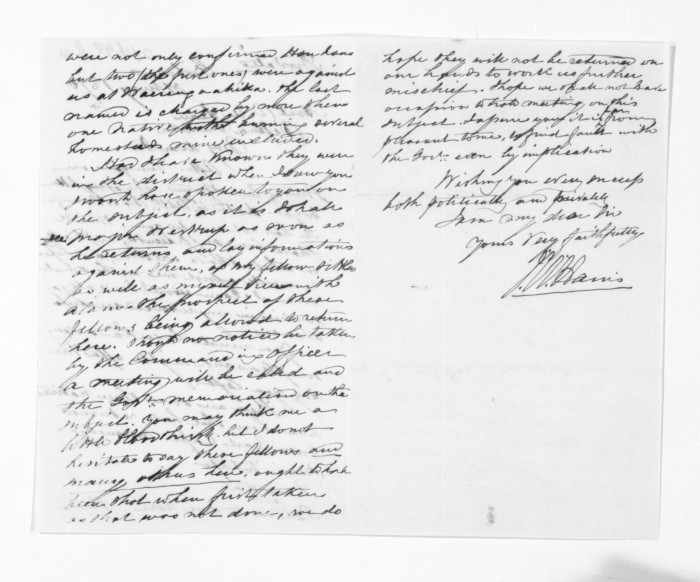 were not only confirmed Hau haus
but two (the first ones) were against
us at Waerenga ahika. The last
named is charged by more than
one native with burning several
homesteads mine included.
Had I have known they were
in the district when I saw you
I would have spoken to you on
the subject, as it is I shall
see Major Westrup as soon as
he returns and lay informations
against them, as my fellow settlers
as well as myself view with
alarm the prospect of these
fellows being allowed to return
here. Should no notice be taken
by the Commanding Officer
a meeting will be called and
the Govt. memorialised on the
subject. You may think me a
little bloodthirsty but I do not
hesitate to say these fellows and
many others here, ought to have
been shot when first taken
as that was not done, we do
hope they will not be returned on
our hands to work us further
mischief. I hope we shall not have
occasion to hold meeting on this
subject. I assure you it is far from
pleasant to me, to find fault with
the Govt. even by implication
Wishing you every success
both politically and privately
I am my dear Sir
Yours Very faithfully
J W Harris